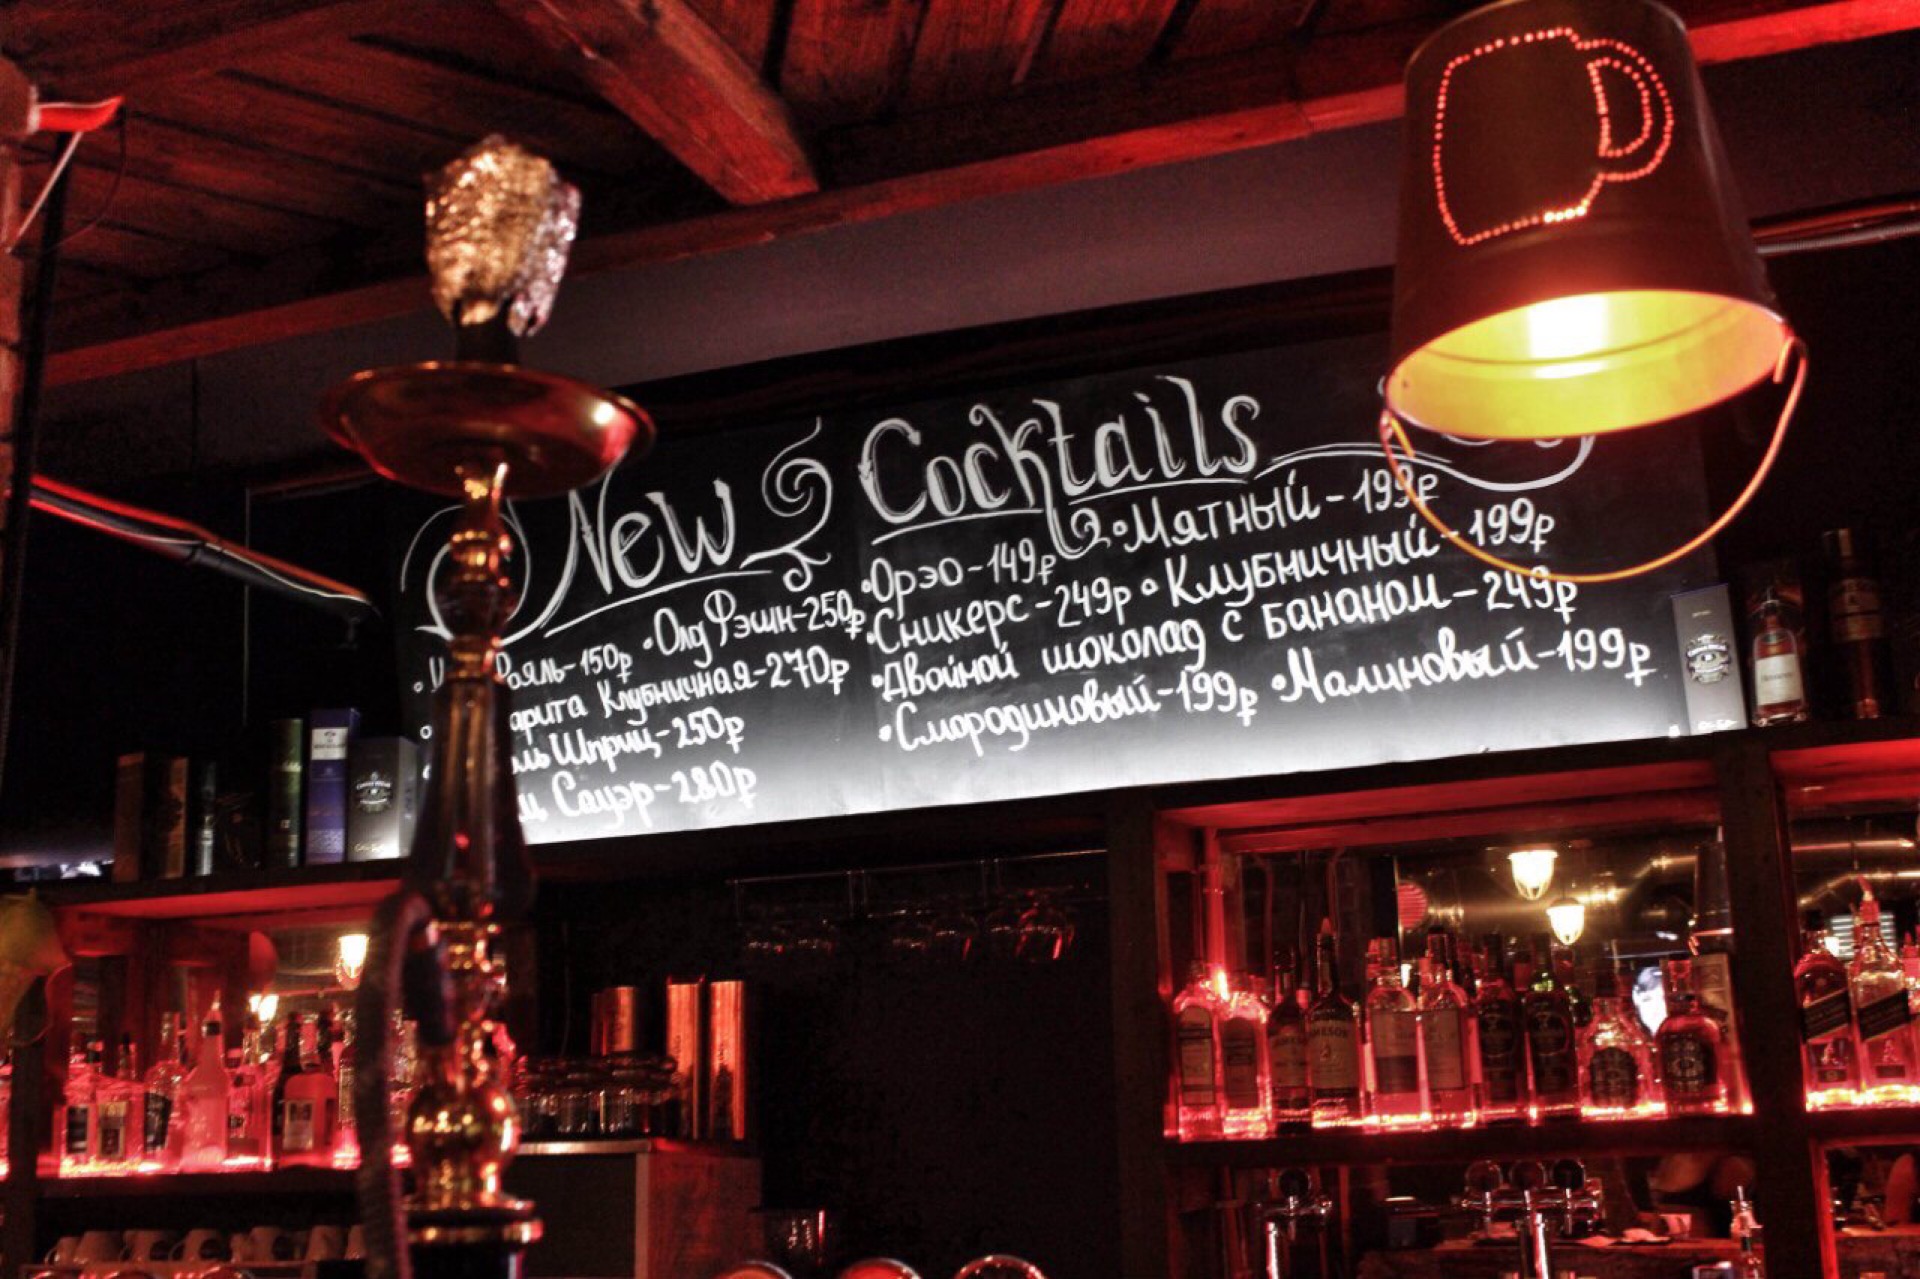 New Cocktails
Рояль-150₽ •Олд Фэшн-250₽
Клубничная-270₽
Шприц-250₽
Сауэр-280₽
•Орэо-149₽ •Мятный-199₽
•Сникерс-249р •Клубничный-199₽
•Двойной шоколад с бананом-249₽
•Смородиновый-199₽ •Малиновый-199₽
JAMESON